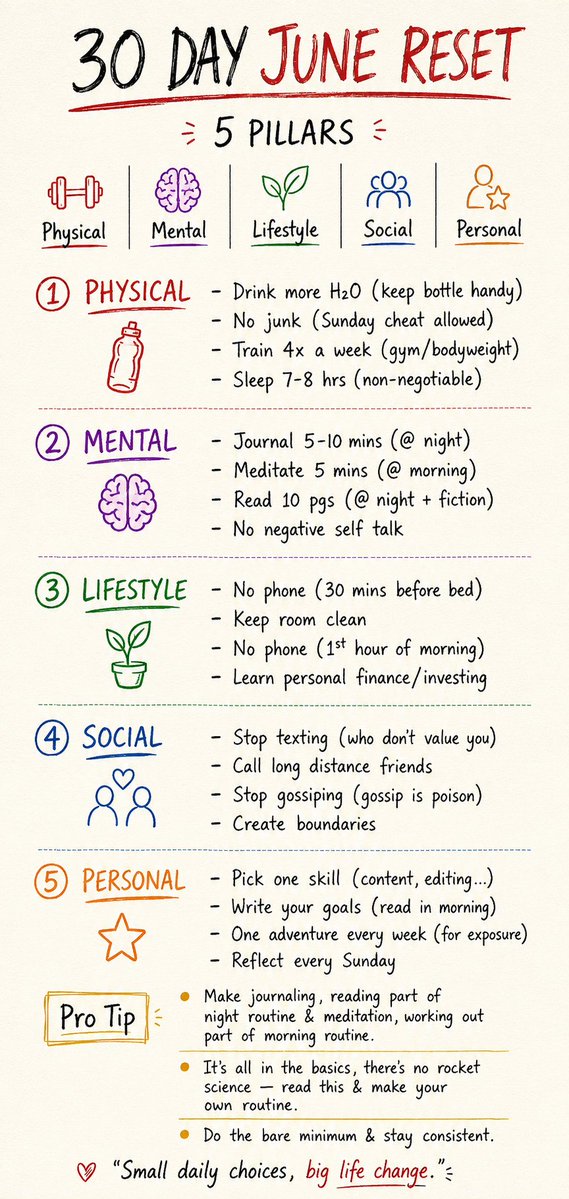 30 DAY JUNE RESET
5 PILLARS
Physical
Mental
Lifestyle
Social
Personal
1 PHYSICAL
- Drink more H₂O (keep bottle handy)
- No junk (Sunday cheat allowed)
- Train 4x a week (gym/bodyweight)
- Sleep 7-8 hrs (non-negotiable)
2 MENTAL
- Journal 5-10 mins (@ night)
- Meditate 5 mins (@ morning)
- Read 10 pgs (@ night + fiction)
- No negative self talk
3 LIFESTYLE
- No phone (30 mins before bed)
- Keep room clean
- No phone (1st hour of morning)
- Learn personal finance/investing
4 SOCIAL
- Stop texting (who don't value you)
- Call long distance friends
- Stop gossiping (gossip is poison)
- Create boundaries
5 PERSONAL
- Pick one skill (content, editing...)
- Write your goals (read in morning)
- One adventure every week (for exposure)
- Reflect every Sunday
Pro Tip
• Make journaling, reading part of
night routine & meditation, working out
part of morning routine.
• It's all in the basics, there's no rocket
science — read this & make your
own routine.
• Do the bare minimum & stay consistent.
"Small daily choices, big life change."